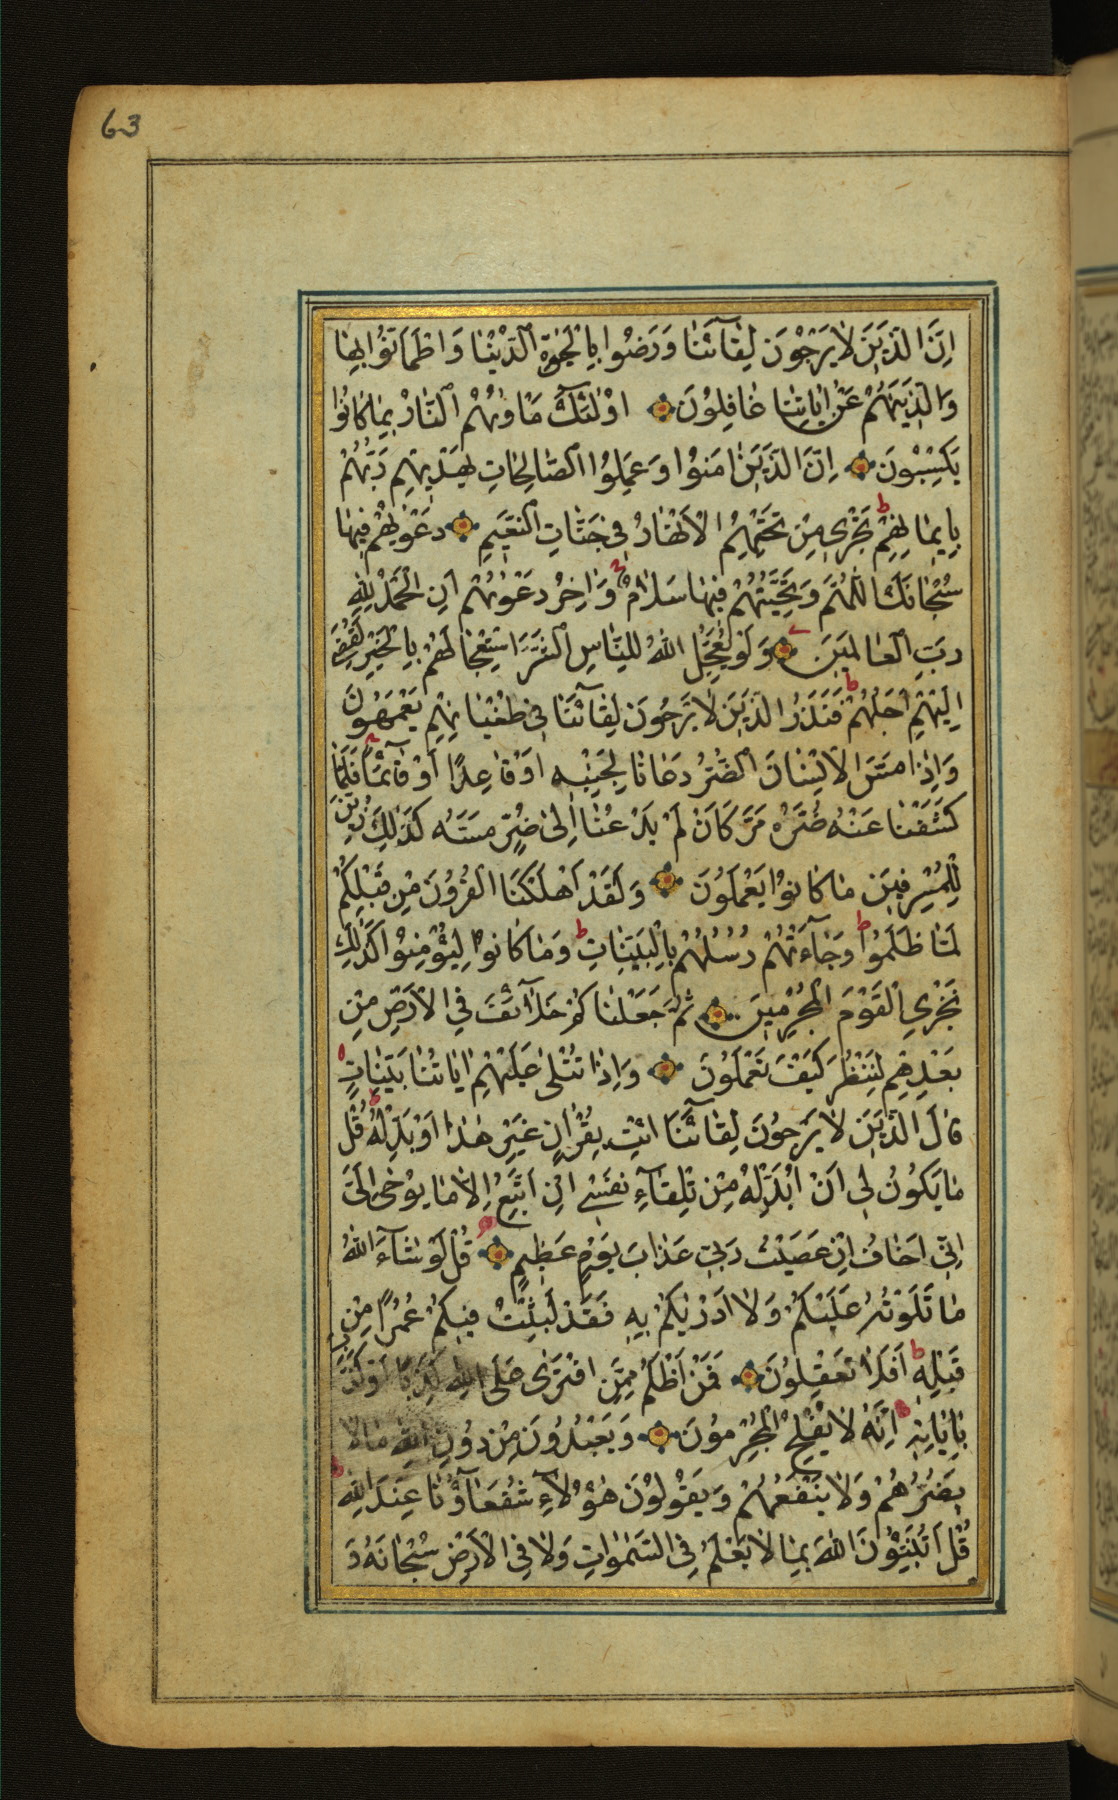 63
اِنَّ الَّذِينَ لَا يَرْجُونَ لِقَآئَنَا وَرَضُوا بِالْحَيٰوةِ الدُّنْيَا وَاطْمَاَنُّوا بِهَا
وَالَّذِينَ هُمْ عَنْ اٰيَاتِنَا غَافِلُونَ اُولٰئِكَ مَاْوٰيهُمُ النَّارُ بِمَا كَانُوا
يَكْسِبُونَ اِنَّ الَّذِينَ اٰمَنُوا وَعَمِلُوا الصَّالِحَاتِ يَهْدِيهِمْ رَبُّهُمْ
بِاِيمَانِهِمْ ط تَجْرِي مِنْ تَحْتِهِمُ الْاَنْهَارُ فِي جَنَّاتِ النَّعِيمِ دَعْوٰيهُمْ فِيهَا
سُبْحَانَكَ اللّٰهُمَّ وَتَحِيَّتُهُمْ فِيهَا سَلَامٌ وَاٰخِرُ دَعْوٰيهُمْ اَنِ الْحَمْدُ لِلّٰهِ
رَبِّ الْعَالَمِينَ وَلَوْ يُعَجِّلُ اللّٰهُ لِلنَّاسِ الشَّرَّ اسْتِعْجَالَهُمْ بِالْخَيْرِ لَقُضِيَ
اِلَيْهِمْ اَجَلُهُمْ ط فَنَذَرُ الَّذِينَ لَا يَرْجُونَ لِقَآئَنَا فِي طُغْيَانِهِمْ يَعْمَهُونَ
وَاِذَا مَسَّ الْاِنْسَانَ الضُّرُّ دَعَانَا لِجَنْبِهِ اَوْ قَاعِدًا اَوْ قَآئِمًا فَلَمَّا
كَشَفْنَا عَنْهُ ضُرَّهُ مَرَّ كَاَنْ لَمْ يَدْعُنَا اِلٰى ضُرٍّ مَسَّهُ كَذٰلِكَ زُيِّنَ
لِلْمُسْرِفِينَ مَا كَانُوا يَعْمَلُونَ وَلَقَدْ اَهْلَكْنَا الْقُرُونَ مِنْ قَبْلِكُمْ
لَمَّا ظَلَمُوا ط وَجَآءَتْهُمْ رُسُلُهُمْ بِالْبَيِّنَاتِ ط وَمَا كَانُوا لِيُؤْمِنُوا كَذٰلِكَ
نَجْزِي الْقَوْمَ الْمُجْرِمِينَ ثُمَّ جَعَلْنَاكُمْ خَلَآئِفَ فِي الْاَرْضِ مِنْ
بَعْدِهِمْ لِنَنْظُرَ كَيْفَ تَعْمَلُونَ وَاِذَا تُتْلٰى عَلَيْهِمْ اٰيَاتُنَا بَيِّنَاتٍ
قَالَ الَّذِينَ لَا يَرْجُونَ لِقَآئَنَا ائْتِ بِقُرْاٰنٍ غَيْرِ هٰذَا اَوْ بَدِّلْهُ ط قُلْ
مَا يَكُونُ لِي اَنْ اُبَدِّلَهُ مِنْ تِلْقَآءِ نَفْسِي اِنْ اَتَّبِعُ اِلَّا مَا يُوحٰى اِلَيَّ
اِنِّي اَخَافُ اِنْ عَصَيْتُ رَبِّي عَذَابَ يَوْمٍ عَظِيمٍ قُلْ لَوْ شَآءَ اللّٰهُ
مَا تَلَوْتُهُ عَلَيْكُمْ وَلَا اَدْرٰيكُمْ بِهِ فَقَدْ لَبِثْتُ فِيكُمْ عُمُرًا مِنْ
قَبْلِهِ ط اَفَلَا تَعْقِلُونَ فَمَنْ اَظْلَمُ مِمَّنِ افْتَرٰى عَلَى اللّٰهِ كَذِبًا اَوْ كَذَّبَ
بِاٰيَاتِهِ اِنَّهُ لَا يُفْلِحُ الْمُجْرِمُونَ وَيَعْبُدُونَ مِنْ دُونِ اللّٰهِ مَا لَا
يَضُرُّهُمْ وَلَا يَنْفَعُهُمْ وَيَقُولُونَ هٰؤُلَآءِ شُفَعَآؤُنَا عِنْدَ اللّٰهِ
قُلْ اَتُنَبِّئُونَ اللّٰهَ بِمَا لَا يَعْلَمُ فِي السَّمٰوَاتِ وَلَا فِي الْاَرْضِ سُبْحَانَهُ وَ